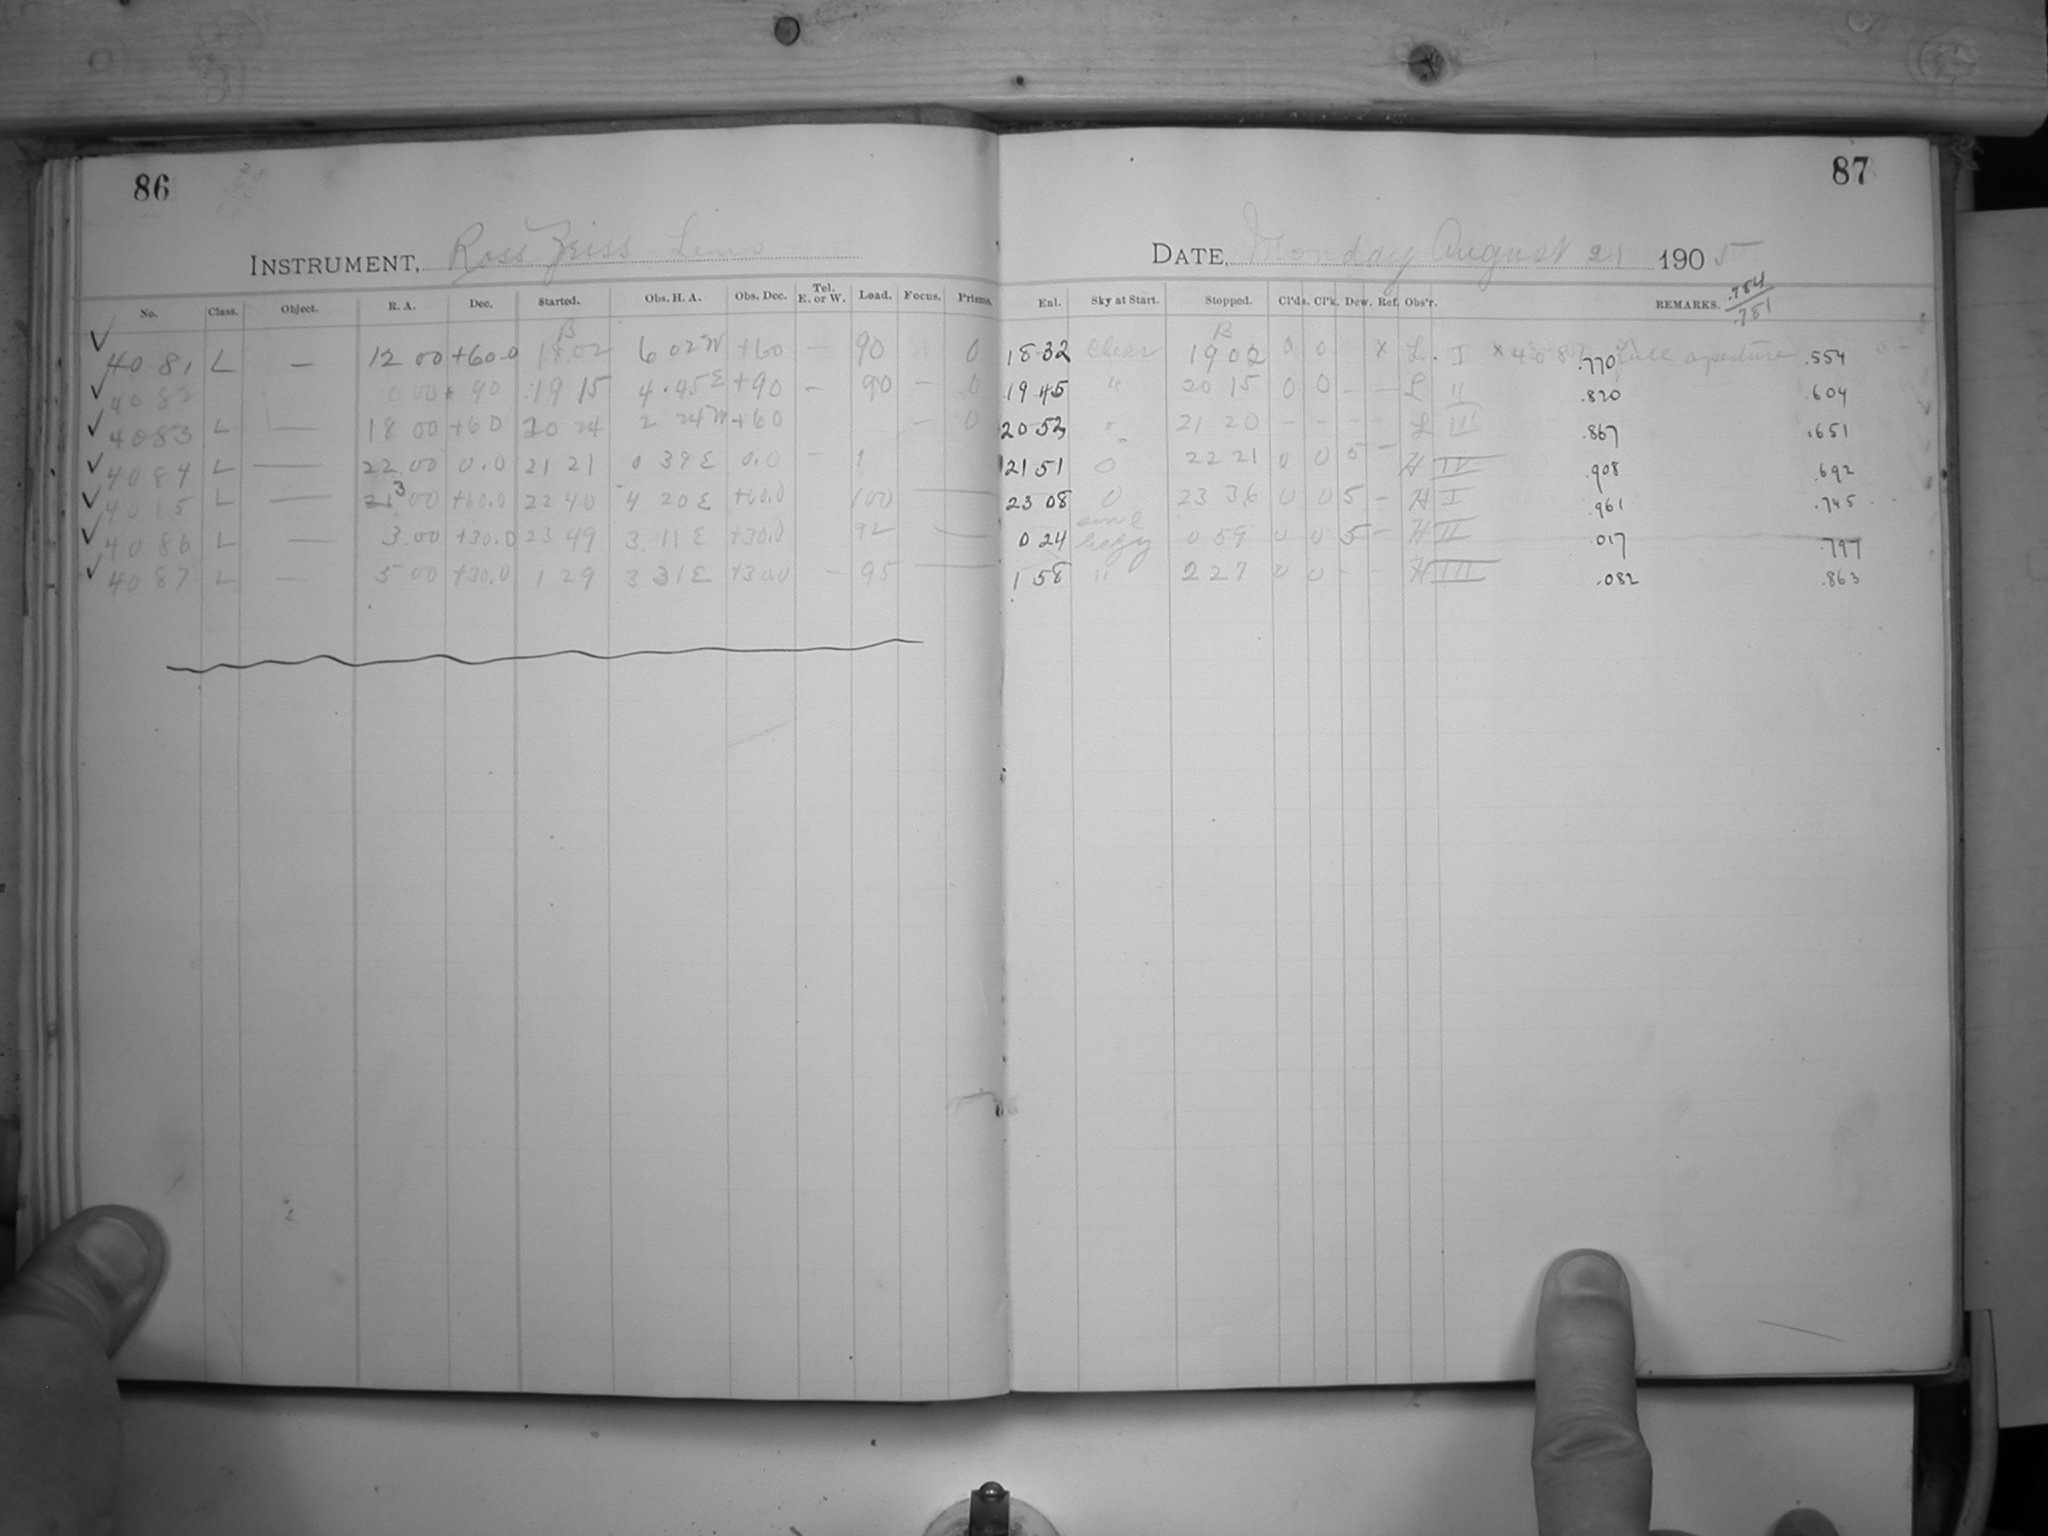 86
87
INSTRUMENT, Ross Zeiss Lens
DATE, Monday August 21 1905
No. Class. Object. R. A. Dec. Started. Obs. H. A. Obs. Dec. Tel. E. or W. Load. Focus. Prisms. Eal. Sky at Start. Stopped. Cl'ds. Cl'k. Dew. Ref. Obs'r. REMARKS. .784
.781
B B
✓ 4081 L — 12 00 +60.0 18 02 6 02 W +60 — 90 0 18 32 Clear 19 02 0 0 x L. I x 408 .770 full aperture .554
✓ 4082 0 00 + 90 19 15 4 45 E +90 — 90 — 0 19 45 " 20 15 0 0 — — L II .820 .604
✓ 4083 L — 18 00 +60 20 24 2 24 W +60 — 0 20 52 " 21 20 — — — — L III .867 .651
✓ 4084 L — 22 00 0.0 21 21 0 39 E 0.0 — 21 51 0 22 21 0 0 5 — H IV .908 .692
✓ 4085 L — 23 00 +60.0 22 40 4 20 E +60.0 100 — 23 08 0 23 36 0 0 5 — H I .961 .745
✓ 4086 L — 3.00 +30.0 23 49 3 11 E +30.0 92 — 0 24 some hazy 0 59 0 0 5 — H II .017 .797
✓ 4087 L — 5 00 +30.0 1 29 3 31 E +30.0 — 95 — 1 58 " 2 27 0 0 — — H III .082 .863